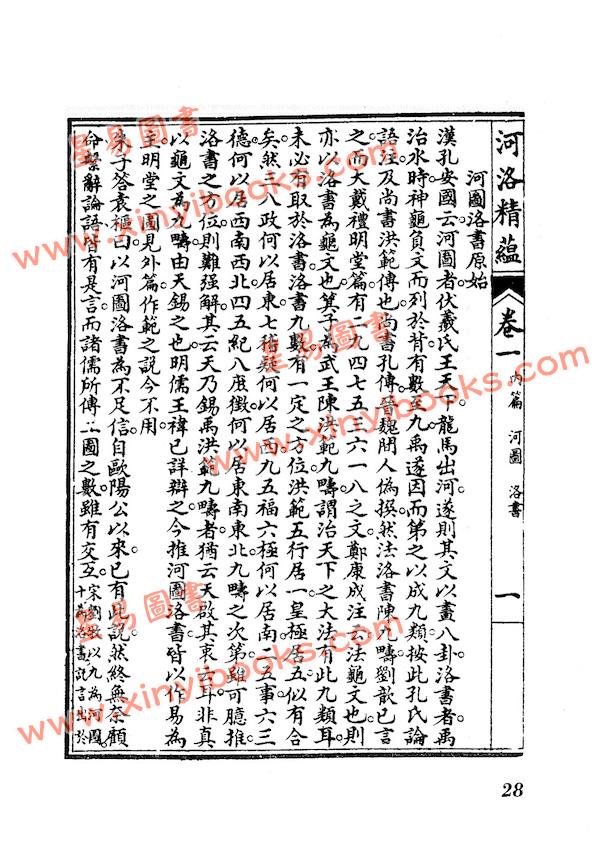 河洛精蘊
卷一
內篇 河圖 洛書
一
河圖洛書原始
漢孔安國云河圖者伏羲氏王天下龍馬出河遂則其文以畫八卦洛書者禹
治水時神龜負文而列於背有數至九禹遂因而第之以成九類按此孔氏論
語注及尚書洪範傳也尚書孔傳晉魏間人偽撰然法洛書陳九疇劉歆已言
之而大戴禮明堂篇有二九四七五三六一八之文鄭康成注云法龜文也則
亦以洛書為龜文也箕子為武王陳洪範九疇謂治天下之大法有此九類耳
未必有取於洛書洛書九數有一定之方位洪範五行居一皇極居五似有合
矣然三八政何以居東七稽疑何以居西九五福六極何以居南二五事六三
德何以居西南西北四五紀八庶徵何以居東南東北九疇之次第雖可臆推
洛書之方位則難強解其云天乃錫禹洪範九疇者猶云天啟其衷云耳非真
以龜文為九疇由天錫之也明儒王禕已詳辯之今推河圖洛書皆以作易為
主明堂之圖見外篇作範之說今不用
朱子答袁樞曰以河圖洛書為不足信自歐陽公以來已有此說然終無奈顧
命繫辭論語皆有是言而諸儒所傳二圖之數雖有交互宋劉牧以九為河圖
十為洛書託言出於
28
星易圖書
www.xinyibooks.com
星易圖書
www.xinyibooks.com
星易圖書
www.xinyibooks.com